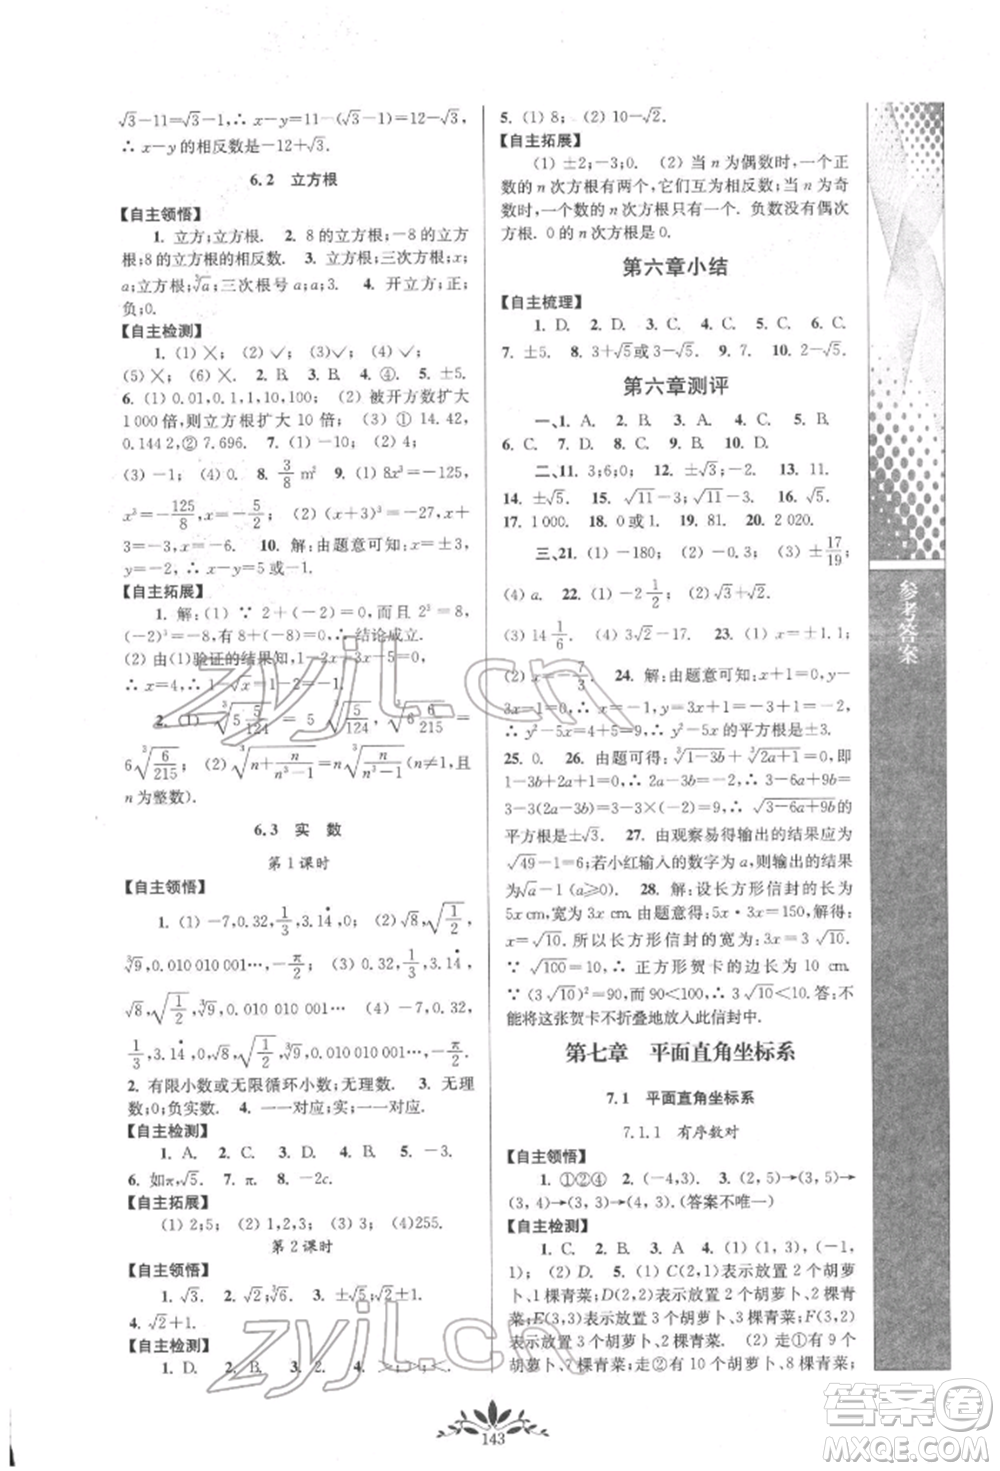 √3−10=√3−1,∴ x−y=11−(√3−1)=12−√3,
∴ x−y的相反数是−12+√3.
6.2 立方根
【自主领悟】
1. 立方;立方根. 2. 8的立方根;−8的立方
根;8的立方根的相反数. 3. 立方根;三次方根;x;
a;立方根;∛a;三次根号a;a;3. 4. 开立方;正;
负;0.
【自主检测】
1. (1) ╳ (2) ✓ (3) ╳ (4) ✓
(5) ╳ (6) ✓ 2. B. 3. B. 4. ④. 5. ±5.
6. (1) 0.01,0.1,1,10,100; (2) 被开方数扩大
1 000 倍,则立方根扩大 10 倍; (3) ① 14.42,
0.144 2,② 7.696. 7. (1)−10; (2) 4;
(3) −1; (4) −1. 8. 3/8 m². 9. (1) 8x³=−125,
x³=−125/8,x=−5/2; (2) (x+3)³=−27,x+
3=−3,x=−6. 10. 解:由题意可知:x=±3,
y=−8.∴
【自主拓展】
1. 解:(1) ∵ 2+(−2)=0,而且 2³=8,
(−2)³=−8,有 8−8=0,∴ 结论成立.
(2) 由(1)验证的结果知,1−2x+3x−5=0,
∴ x=4,∴ 1−√x=1−2=−1.
2. (1) ∛(5 5/124)=5∛(5/124),∛(6 6/215)=
6∛(6/215); (2) ∛(n+n/(n³−1))=n∛(n/(n³−1))(n≠1,且
n 为整数).
6.3 实 数
第 1 课时
【自主领悟】
1. (1) −7,0.32,1/3,3.1̇4̇,0; (2) √8,√(1/2),
∛9,0.010 010 001…,−π/2; (3) 0.32,1/3,3.1̇4̇,
√8,√(1/2),∛9,0.010 010 001… (4) −7,0.32,
1/3,3.1̇4̇,0,√8,√(1/2),∛9,0.010 010 001…,−π/2.
2. 有限小数或无限循环小数;有理数. 3. 无理
数;0;负实数. 4. 一一对应;实;一一对应.
【自主检测】
1. A. 2. C. 3. D. 4. A. 5. −3.
6. 如π,√5. 7. π. 8. −2c.
【自主拓展】
(1) 2;5; (2) 1,2,3; (3) 3. (4)255.
第 2 课时
【自主领悟】
1. √3. 2. √2,∛2. 3. ±√3.
4. √2+1.
【自主检测】
1. D. 2. C. 3. A. 4. >;>;<.
5. (1) 8; (2) 10−√2.
【自主拓展】
(1) ±2;−3;0. (2) 当 n 为偶数时,一个正
数的 n 次方根有两个,它们互为相反数;当 n 为奇
数时,一个数的 n 次方根只有一个. 负数没有偶次
方根. 0 的 n 次方根是 0.
第六章小结
【自主梳理】
1. D. 2. B. 3. D. 4. B. 5. C. 6. C.
7. ±5. 8. 3+√5或3−√5. 9. 7. 10. 2.
第六章测评
一、1. A. 2. B. 3. A. 4. C. 5. B.
6. C. 7. D. 8. C. 9. D. 10. C.
二、11. 3;6;0. 12. ±√3;−2. 13. 0.
14. ±√5. 15. √11−3. 16. √3−√2.
17. 1 000. 18. 0或1. 19. 81. 20. 2 020.
三、21. (1) −180; (2) −0.3; (3) ±17/19;
(4) a. 22. (1) −1/2; (2) √3+√2.
(3) 14 1/6; (4) √6. 23. (1) x=±1.1;
(2) x=−7/3. 24. 解:由题意可知:x+1=0,
3x+y−1=0,解得:x=−1,y=4.
∴ y²−5x=9,∴ y²−5x 的平方根是±3.
25. 0. 26. 由题意可得:∛(1−3b)+∛(2a+1)=0,即
1−3b+2a+1=0,∴ 2a−3b=−2,∴ 3−6a+9b=
3−3(2a−3b)=3−3×(−2)=9,∴ √(3−6a+9b)的
平方根是±√3. 27. 由观察易得输出的结果应为
√49−1=6;若小红输入的数字为 a,则输出的结果
为√a−1(a≥0). 28. 解:设长方形信封的长为
5x cm,宽为 3x cm. 由题意得:5x·3x=150,解得:
x=√10. 所以长方形信封的宽为:3x=3√10.
∵ √100=10,∴ 正方形贺卡的边长为 10 cm.
∵ (3√10)²=90,而 90<100,∴ 3√10<10.答:不
能将这张贺卡不折叠地放入此信封中.
第七章 平面直角坐标系
7.1 平面直角坐标系
7.1.1 有序数对
【自主领悟】
1. ①②④ 2. (−4,3). 3. (2,5)→(3,5)→
(3,4)→(3,3)→(4,3).(答案不唯一)
【自主检测】
1. C. 2. B. 3. (4,7). 4. (1) (−1,
1); (2) D. 5. (1) C(2,1)表示放置 2 个胡萝
卜、1 棵青菜;D(2,2)表示放置 2 个胡萝卜、2 棵
青菜;E(3,3)表示放置 3 个胡萝卜、3 棵青菜;F(3,2)
表示放置 3 个胡萝卜、2 棵青菜. (2) 走①有 9 个
胡萝卜、7 棵青菜;走②有 10 个胡萝卜、8 棵青菜;
参考答案
143
zyjl.cn
zyjl.cn
答案圈
MXQE.COM